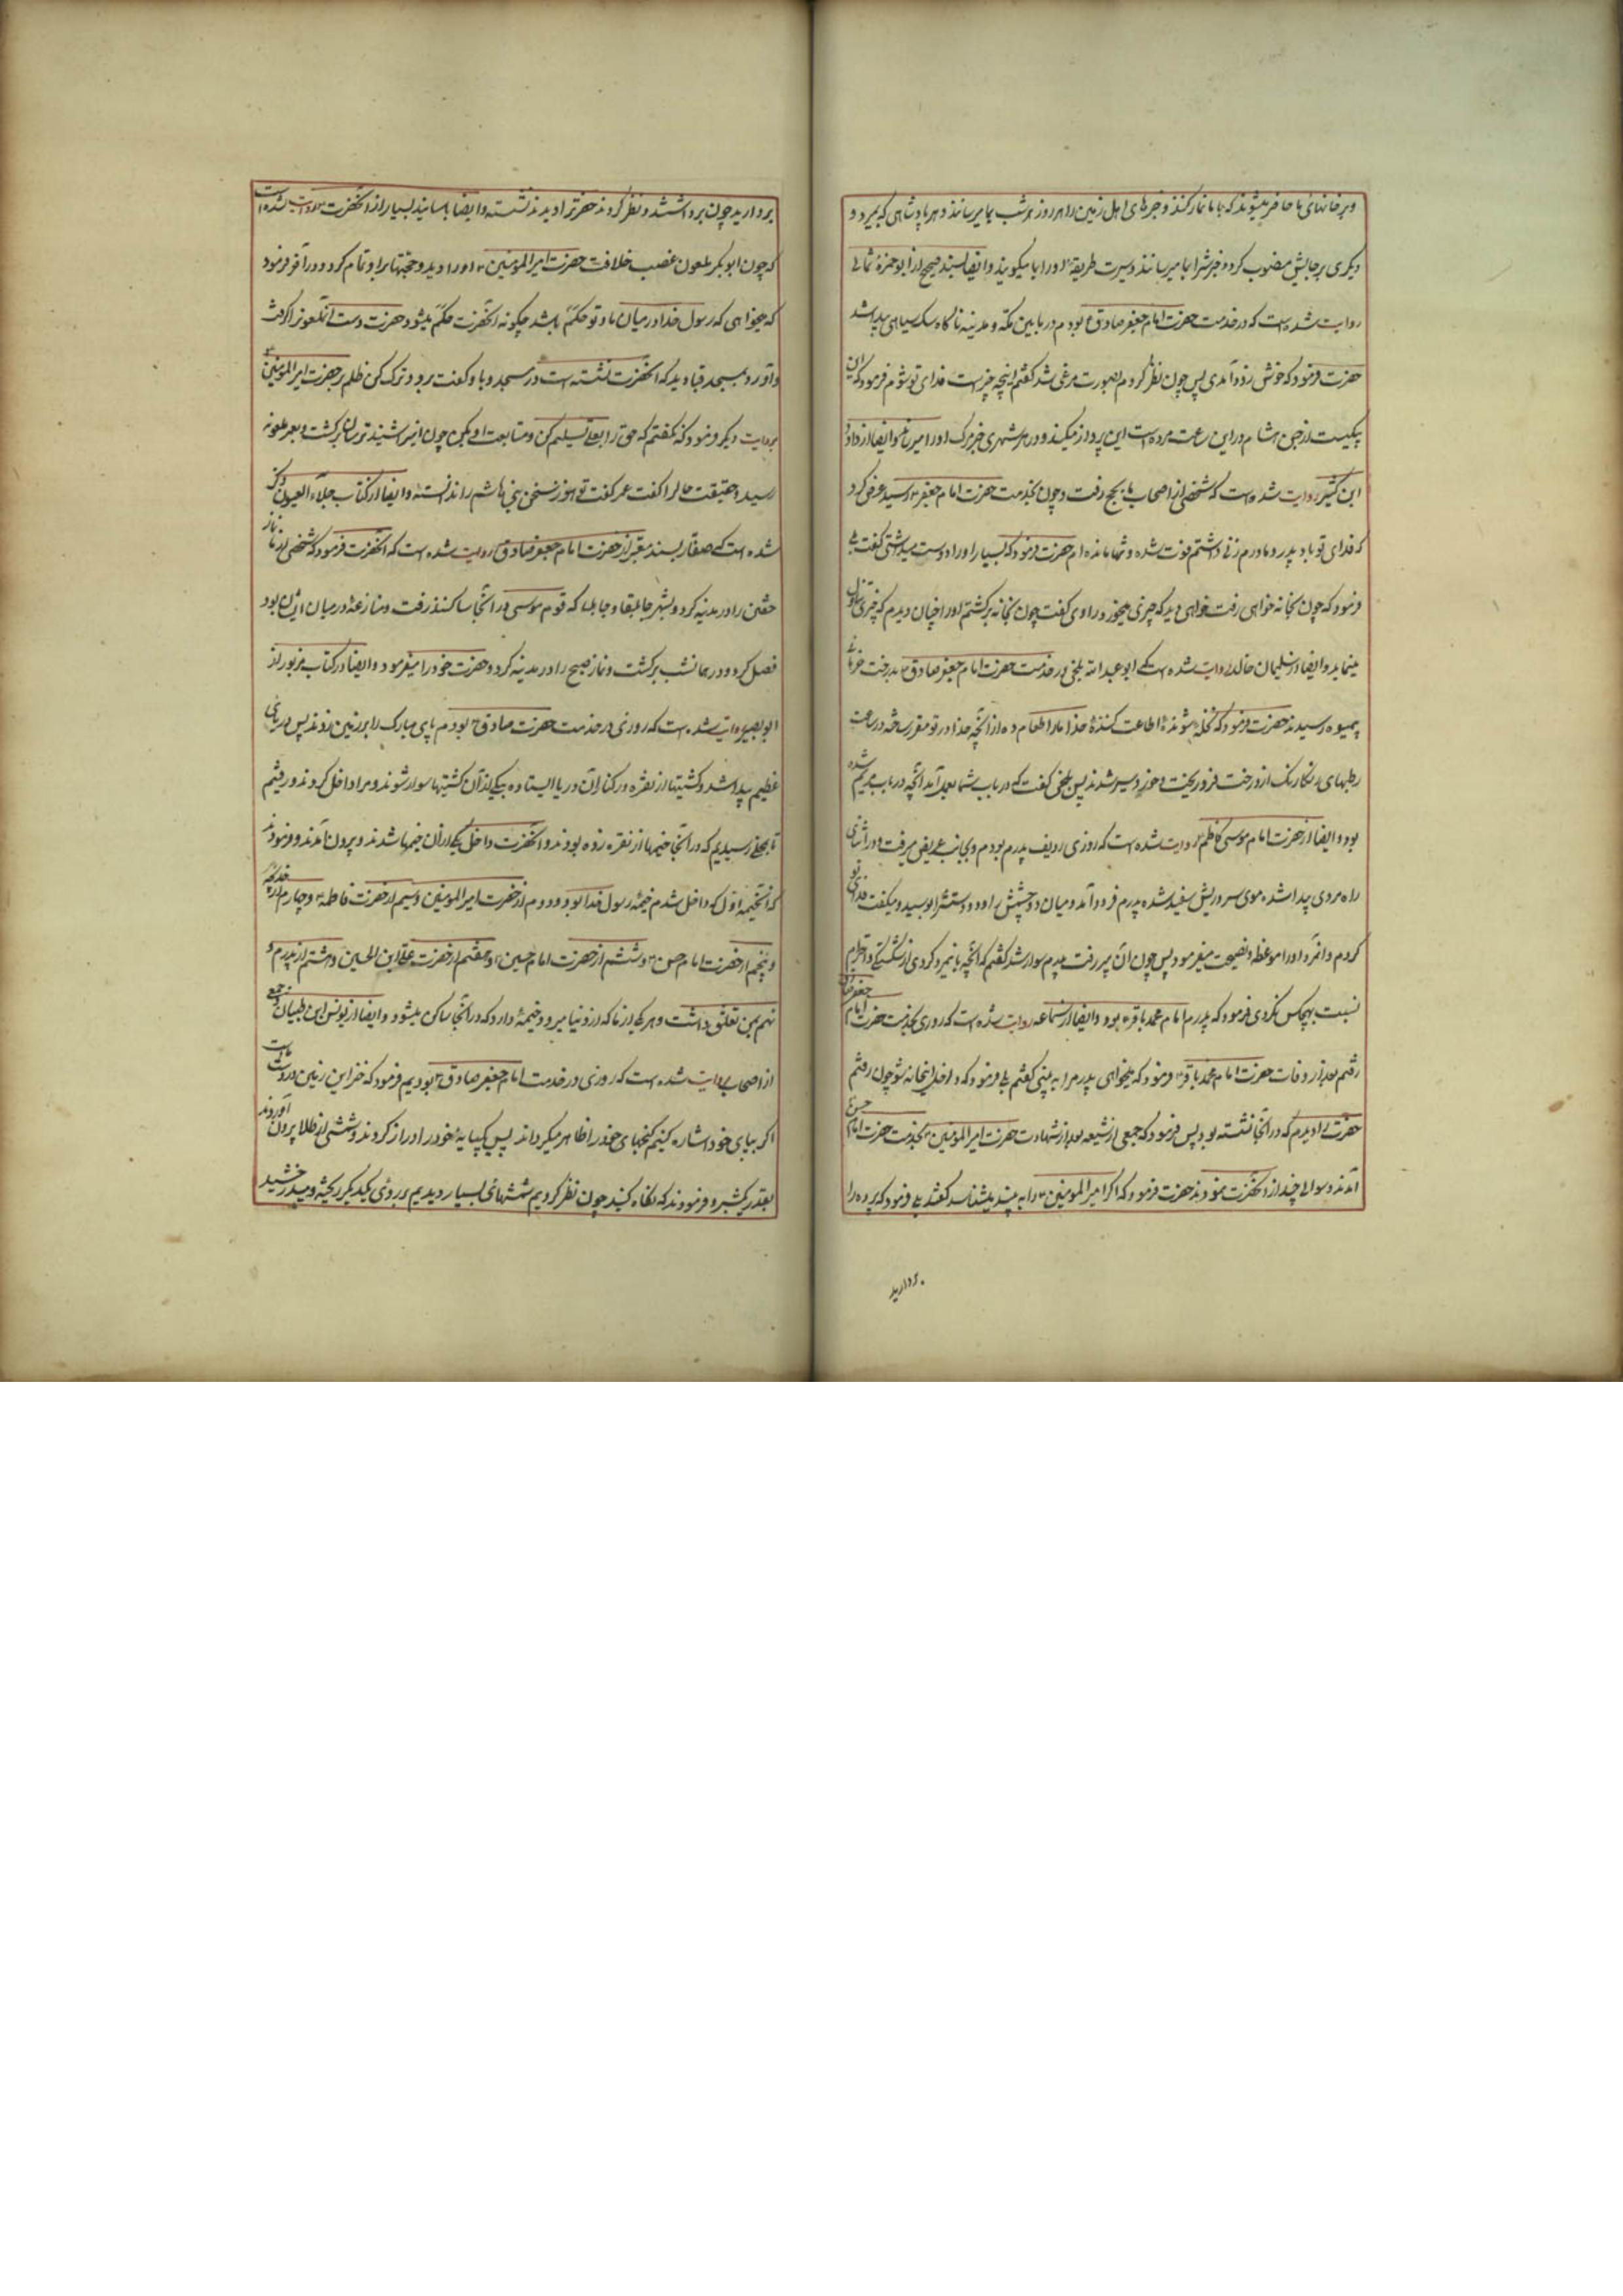 و بر خانهای ما حاضر میشوند که با ما نماز کنند و خبرهای اهل زمین را هر روز و هر شب بما میرسانند و هر پادشاهی که بمیرد و
دیگری بر جایش منصوب گردد خبرش را بما میرسانند و سیرت و طریقه او را بما میگویند و ایضا بسند صحیح از ابو حمزهٔ ثمالی
روایت شده است که در خدمت حضرت امام جعفر صادق ع بودم در ما بین مکه و مدینه ناگاه سک سیاهی پیدا شد
حضرت فرمود که خوش زود آمدی پس چون نظر کردم بصورت مرغی شد کفتم اینچه چیز است فدای تو شوم فرمود که این
پیکیست از جن هشام در این ساعت مرده است این پرواز میکند و در هر شهری خبر مرک او را میرساند و ایضا از داود
ابن کثیر روایت شده است که شخصی از اصحاب ما بحج رفت و چون بخدمت حضرت امام جعفر ع رسید عرض کرد
که فدای تو باد پدر و مادرم زنی داشتم فوت شده و تنها مانده ام حضرت فرمود که بسیار او را دوست میداشتی کفت بلی
فرمود که چون بخانه خواهی رفت خواهی دید که چیزی میخورد راوی کفت چون بخانه برکشتم او را چنان دیدم که چیزی تناول
مینماید و ایضا از سلیمان خالد روایت شده است که ابو عبد الله بلخی در خدمت حضرت امام جعفر صادق ع بدرخت خرمای
بیمیوه رسیدند حضرت فرمود که ای نخله شنوندهٔ اطاعت کنندهٔ خدا ما را طعام ده از آنچه خدا در تو مقرر ساخته در ساعت
رطبهای رنکارنک از درخت فرو ریخت و خوردند و سیر شدند پس بلخی کفت که در باب شما بعمل آمد آنچه در باب مریم شده
بود و ایضا از حضرت امام موسی کاظم ع روایت شده است که روزی ردیف پدرم بودم و بجانب عریض میرفت در اثنای
راه مردی پیدا شد موی سر و ریش سفید شده پدرم فرود آمد و میان دو چشمش را و دو دستش را بوسید و میکفت فدای تو
کردم و آنمرد او را موعظه و نصیحت میفرمود پس چون آن پیر رفت پدرم سوار شد کفتم که آنچه با نمرد کردی از شکستکی و احترام
نسبت بهیچکس نکردی فرمود که پدرم امام محمد باقر ع بود و ایضا از سماعه روایت شده است که روزی بخدمت حضرت امام جعفر صادق
رفتم بعد از وفات حضرت امام محمد باقر ع فرمود که میخواهی پدر مرا به بینی کفتم بلی فرمود که داخل اینخانه شو چون رفتم
حضرت را دیدم که در آنجا نشسته بود پس فرمود که جمعی از شیعه بعد از شهادت حضرت امیر المومنین ع بخدمت حضرت امام حسن ع
آمدند و سوالی چند از آنحضرت نمودند حضرت فرمود که اگر امیر المومنین ع را به بینید میشناسید کفتند بلی فرمود که پرده را
بردارید
بردارید چون برداشتند و نظر کردند حضرت را دیدند نشسته و ایضا باسانید بسیار از آنحضرت ع روایت شده است
که چون ابو بکر ملعون غصب خلافت حضرت امیر المومنین ع او را دید و حجتها بر او تمام کرد و در آخر فرمود
که میخواهی که رسول خدا در میان ما و تو حکم باشد چکونه آنحضرت حکم میشود حضرت دست آنملعون را کرفت
و آورد بمسجد قبا دید که آنحضرت نشسته است در مسجد و با و کفت برو و ترک کن ظلم بر حضرت امیر المومنین ع
بروایت دیگر فرمود که نکفتم که حق را بعلی تسلیم کن و متابعت او بکن چون این شنید ترسان برکشت و بعمر ملعون
رسید و حقیقت حال را کفت عمر کفت تو هنوز سخن بنی هاشم را ندانسته و ایضا در کتاب جلاء العیون ذکر
شده است که صفار بسند معتبر از حضرت امام جعفر صادق روایت شده است که آنحضرت فرمود که شخصی از ما نماز
خفتن را در مدینه کرد و بشهر جابلقا و جابلسا که قوم موسی در آنجا ساکنند رفت و منازعهٔ در میان ایشان بود
فصل کرد و در همانشب برکشت و نماز صبح را در مدینه کرد و حضرت خود را میفرمود و ایضا در کتاب مزبور از
ابو بصیر روایت شده است که روزی در خدمت حضرت صادق ع بودم پای مبارک را بر زمین زدند پس دریای
عظیم پیدا شد و کشتیها از نقره در کنار آن دریا ایستاده بیکی از آن کشتیها سوار شوند و مرا داخل کردند و رفتیم
تا بمحلی رسیدیم که در آنجا خیمها از نقره زده بودند و آنحضرت داخل یکی از آن خیمها شدند و بیرون آمدند و فرمودند
که آنخیمه اول که داخل شدم خیمهٔ رسول خدا بود و دوم از حضرت امیر المومنین و سیم از حضرت فاطمه ع و چهارم از خدیجه
و پنجم از حضرت امام حسن ع و ششم از حضرت امام حسین ع و هفتم از حضرت علی ابن الحسین و هشتم از پدرم و
نهم بمن تعلق داشت و هر که از ما که از دنیا میرود خیمهٔ دارد که در آنجا ساکن میشود و ایضا از یونس ابن ظبیان و جمعی
از اصحاب روایت شده است که روزی در خدمت امام جعفر صادق ع بودیم فرمود که خزاین زمین در دست ماست
اکر بپای خود اشاره کنیم کنجهای خود را ظاهر میکرداند پس یکپایهٔ خود را دراز کردند و شمشی از طلا بیرون آوردند
بقدر یکشبر و فرمودند که نکاه کنید چون نظر کردیم شمشهای بسیار دیدیم بر روی یکدیکر ریخته و میدرخشید